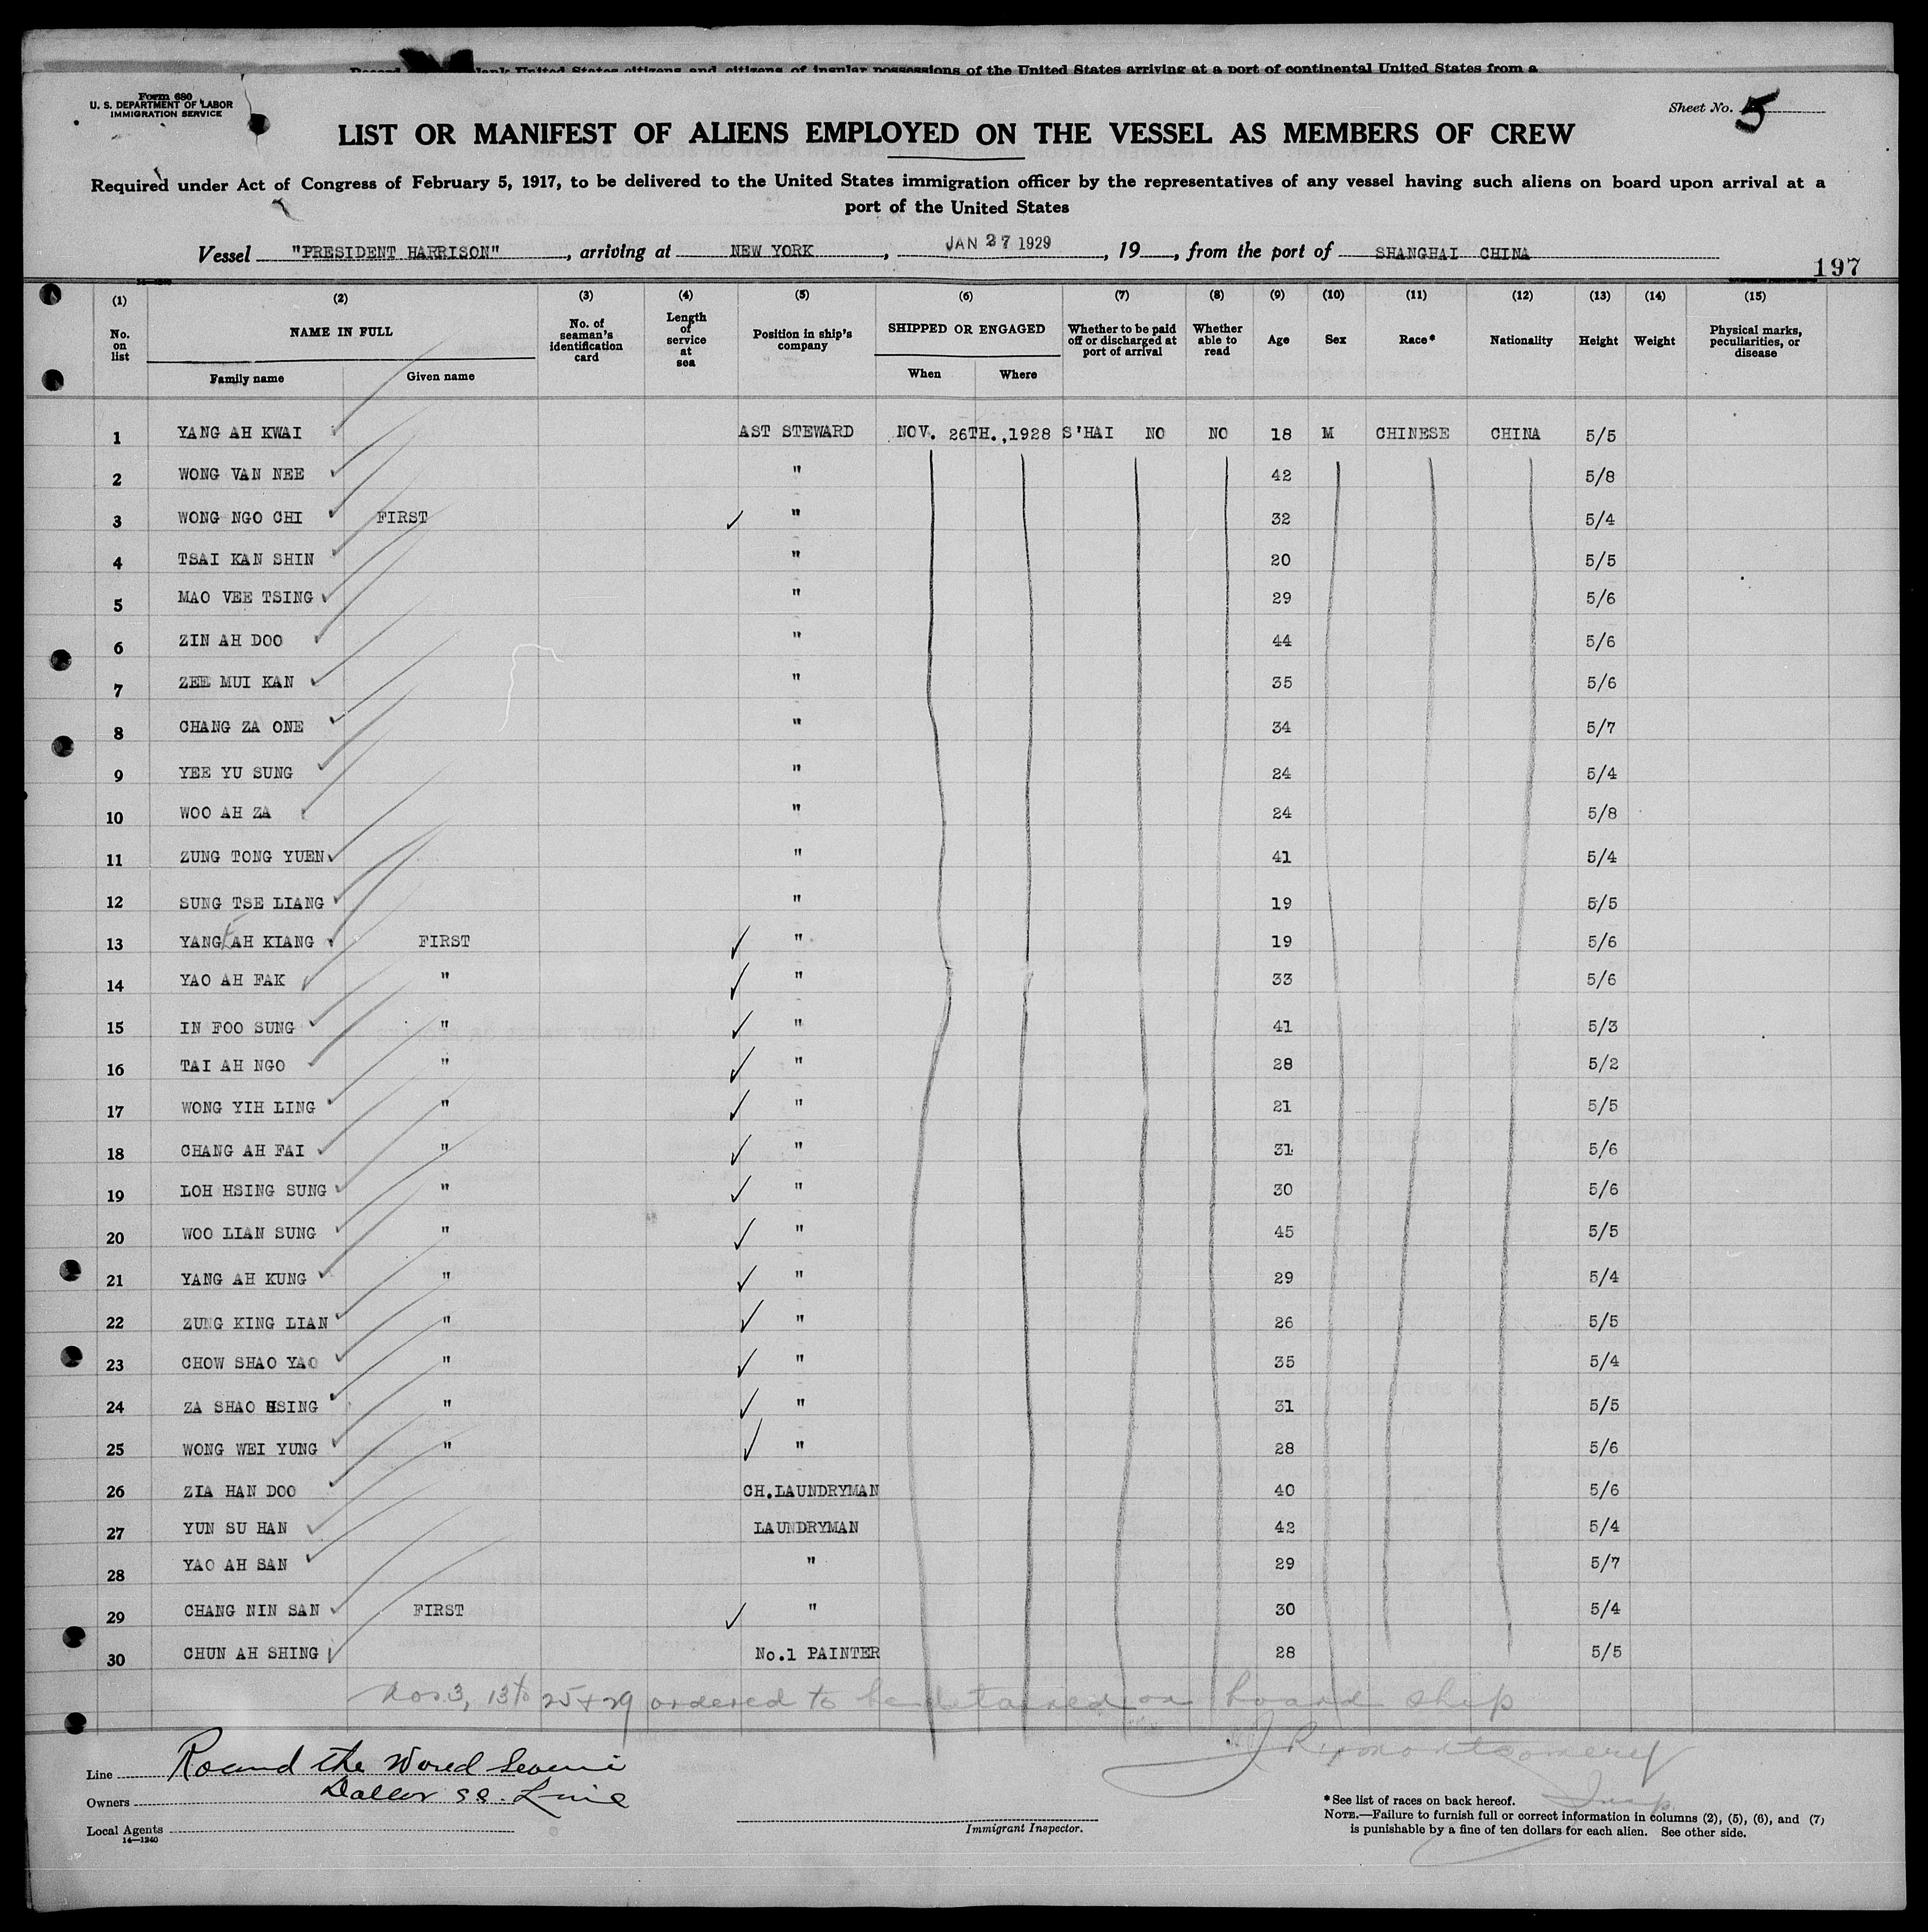 Form 680
U. S. DEPARTMENT OF LABOR
IMMIGRATION SERVICE
Sheet No. 5
LIST OR MANIFEST OF ALIENS EMPLOYED ON THE VESSEL AS MEMBERS OF CREW
Required under Act of Congress of February 5, 1917, to be delivered to the United States immigration officer by the representatives of any vessel having such aliens on board upon arrival at a
port of the United States
Vessel "PRESIDENT HARRISON", arriving at NEW YORK, JAN 27 1929, 19 , from the port of SHANGHAI CHINA
197
(1) (2) (3) (4) (5) (6) (7) (8) (9) (10) (11) (12) (13) (14) (15)
No. on list NAME IN FULL No. of seaman's identification card Length of service at sea Position in ship's company SHIPPED OR ENGAGED Whether to be paid off or discharged at port of arrival Whether able to read Age Sex Race* Nationality Height Weight Physical marks, peculiarities, or disease
Family name Given name When Where
1 YANG AH KWAI AST STEWARD NOV. 26TH.,1928 S'HAI NO NO 18 M CHINESE CHINA 5/5
2 WONG VAN NEE " 42 5/8
3 WONG NGO CHI FIRST " 32 5/4
4 TSAI KAN SHIN " 20 5/5
5 MAO VEE TSING " 29 5/6
6 ZIN AH DOO " 44 5/6
7 ZEE MUI KAN " 35 5/6
8 CHANG ZA ONE " 34 5/7
9 YEE YU SUNG " 24 5/4
10 WOO AH ZA " 24 5/8
11 ZUNG TONG YUEN " 41 5/4
12 SUNG TSE LIANG " 19 5/5
13 YANG AH KIANG FIRST " 19 5/6
14 YAO AH FAK " " 33 5/6
15 IN FOO SUNG " " 41 5/3
16 TAI AH NGO " " 28 5/2
17 WONG YIH LING " " 21 5/5
18 CHANG AH FAI " " 31 5/6
19 LOH HSING SUNG " " 30 5/6
20 WOO LIAN SUNG " " 45 5/5
21 YANG AH KUNG " " 29 5/4
22 ZUNG KING LIAN " " 26 5/5
23 CHOW SHAO YAO " " 35 5/4
24 ZA SHAO HSING " " 31 5/5
25 WONG WEI YUNG " " 28 5/6
26 ZIA HAN DOO CH.LAUNDRYMAN 40 5/6
27 YUN SU HAN LAUNDRYMAN 42 5/4
28 YAO AH SAN " 29 5/7
29 CHANG NIN SAN FIRST " 30 5/4
30 CHUN AH SHING No.1 PAINTER 28 5/5
Nos. 3, 13 to 25 + 29 ordered to be detained on board ship
Montgomery
Insp.
Line Round the World
Owners Dollar SS. Line
Local Agents
14—1240
Immigrant Inspector.
*See list of races on back hereof.
NOTE.—Failure to furnish full or correct information in columns (2), (5), (6), and (7)
is punishable by a fine of ten dollars for each alien. See other side.